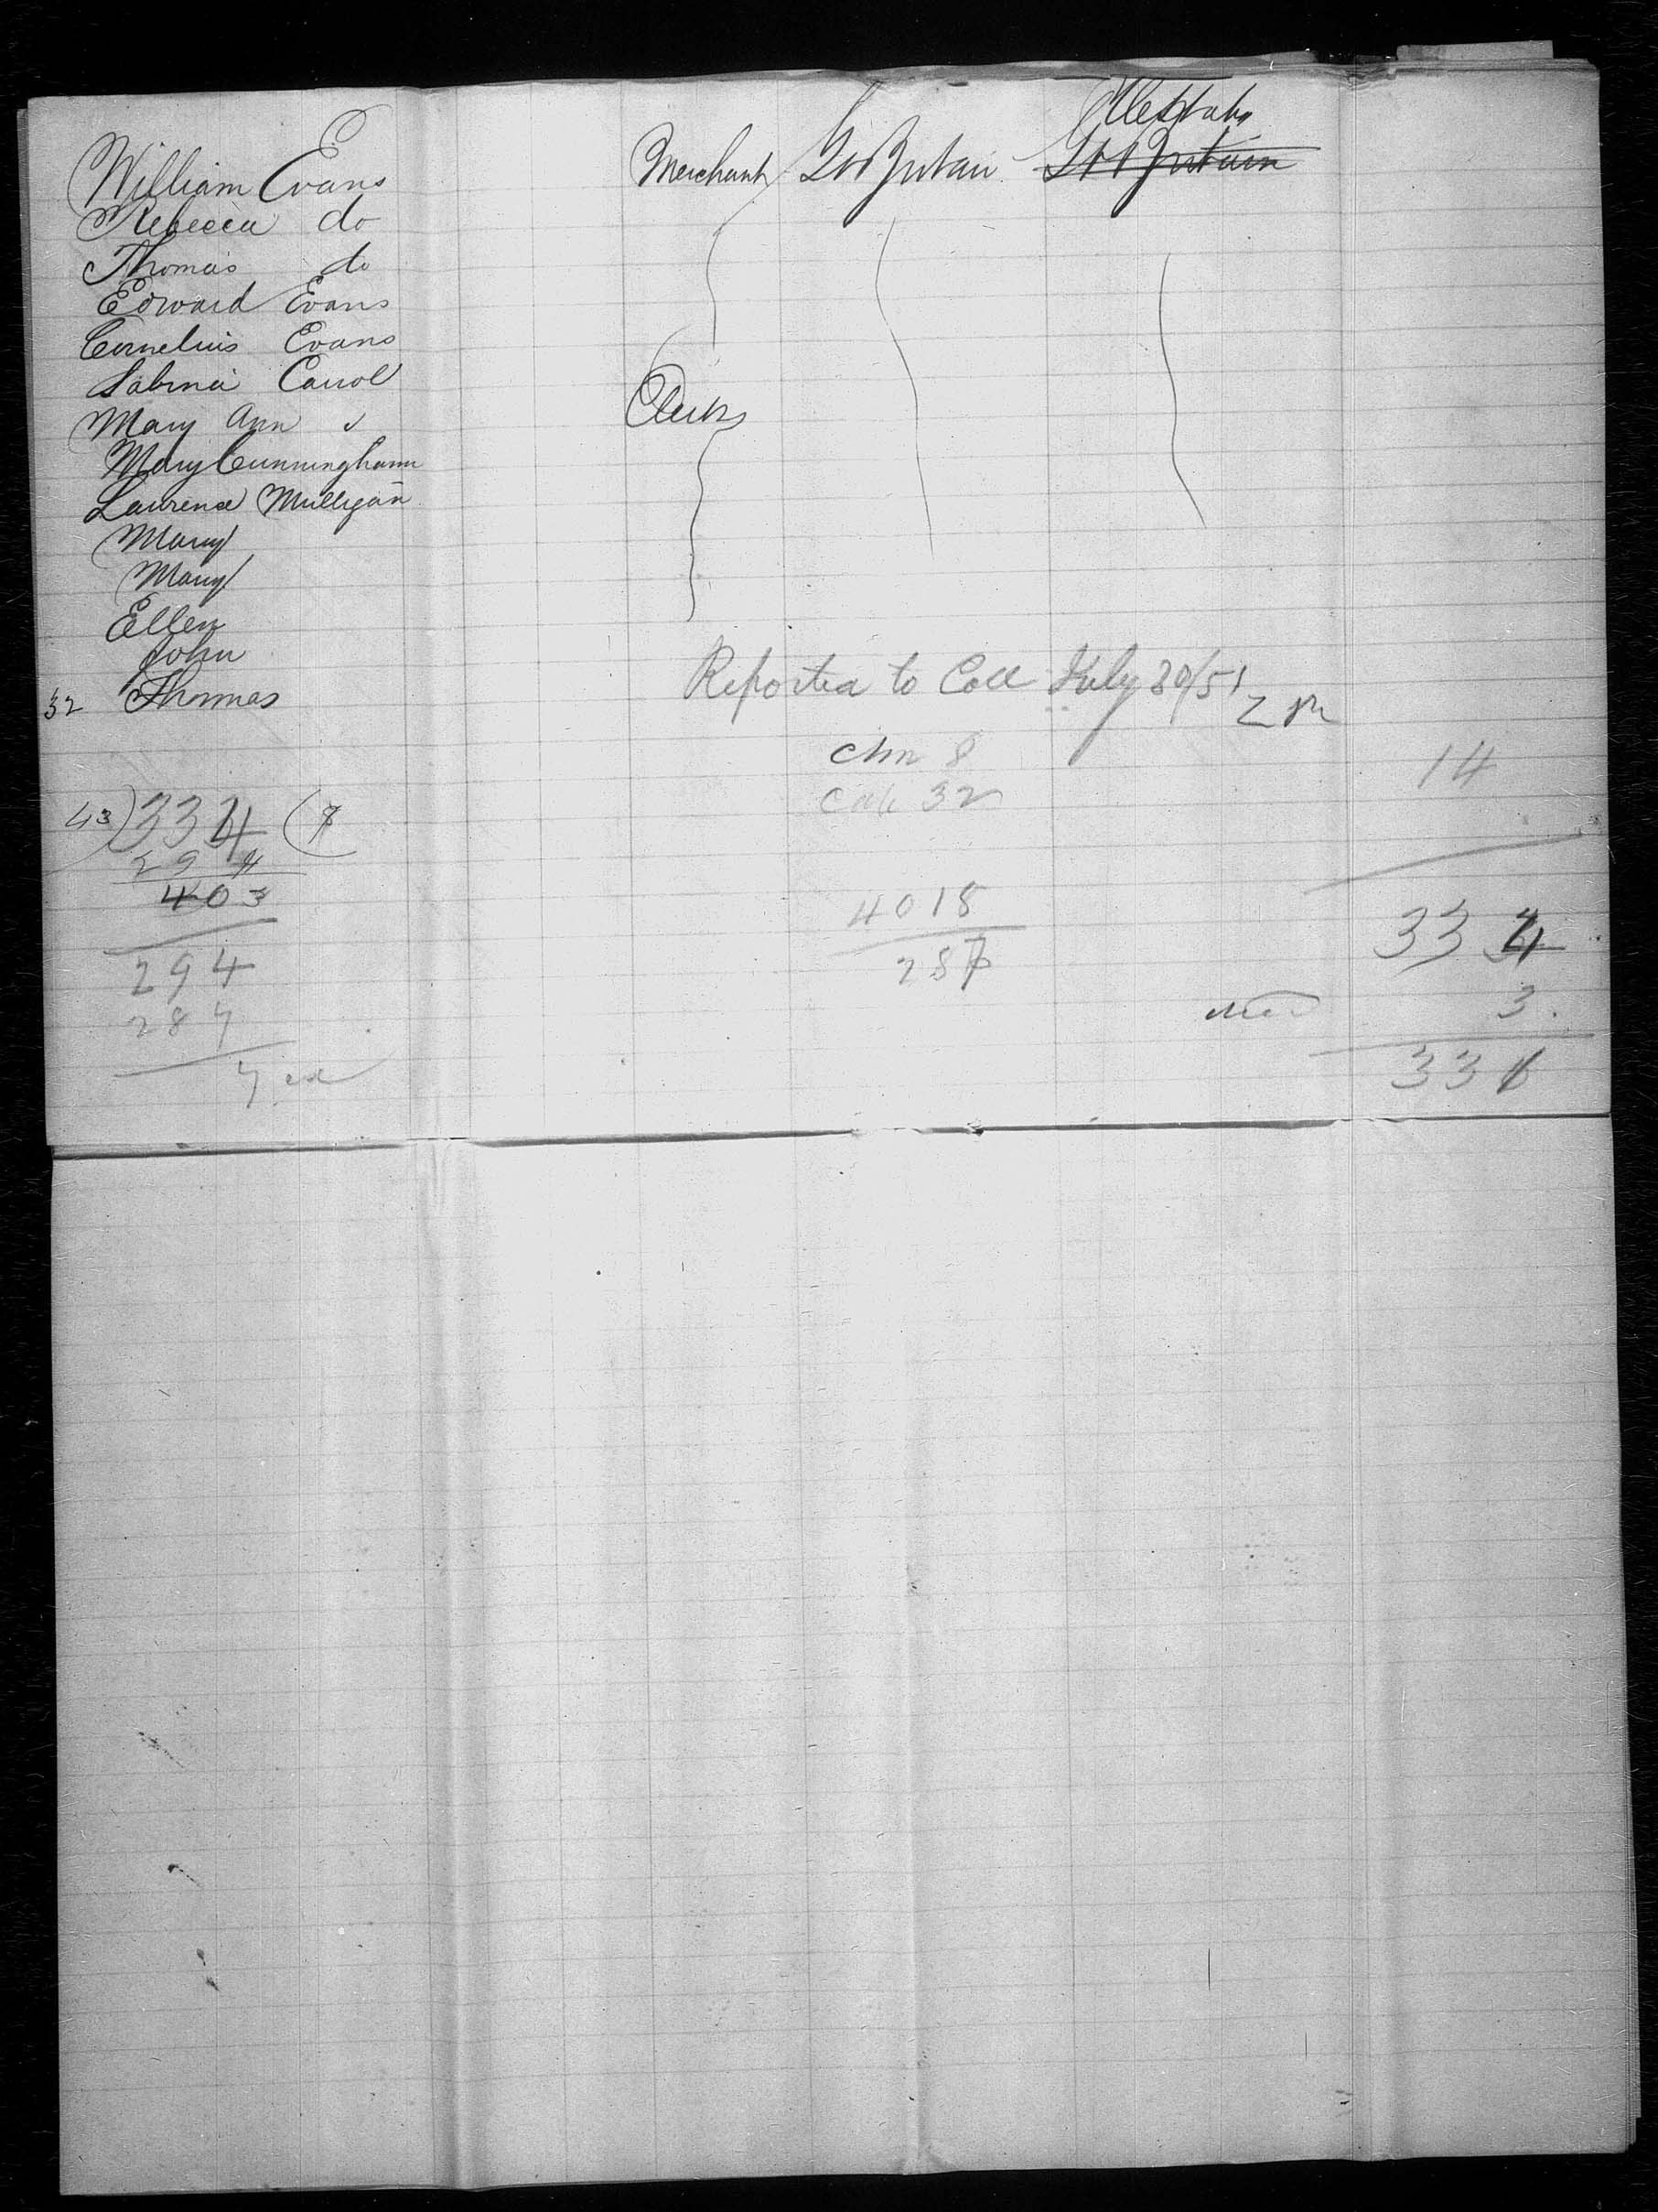 William Evans Merchant Gt Britain U States Gt Britain
Rebecca do
Thomas do
Edward Evans
Cornelius Evans
Sabina Carrol
Mary Ann Clerk
Mary Cunningham
Laurence Mulligan
Mary
Mary
Ellen
John
32 Thomas
Reported to Coll July 30/51
chn 8
14
43)334(7
32
294
403
4018
334
294
287
3
287
331
7